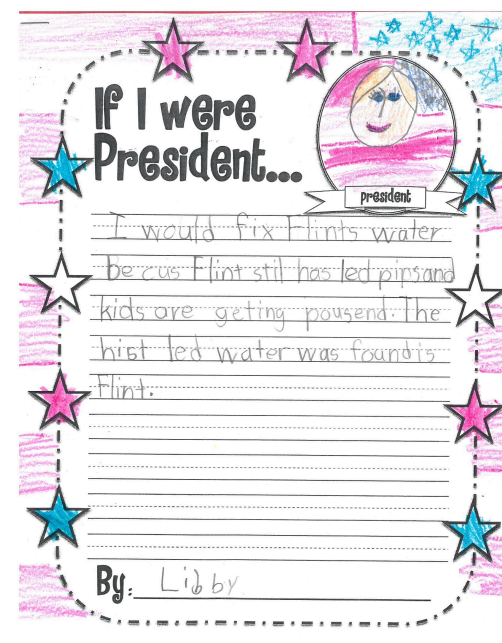 If I were
President...
president
I would fix Flints water
Be cus Flint stil has led pips and
kids are geting pousend. The
hist led water was found is
Flint.
By: Libby